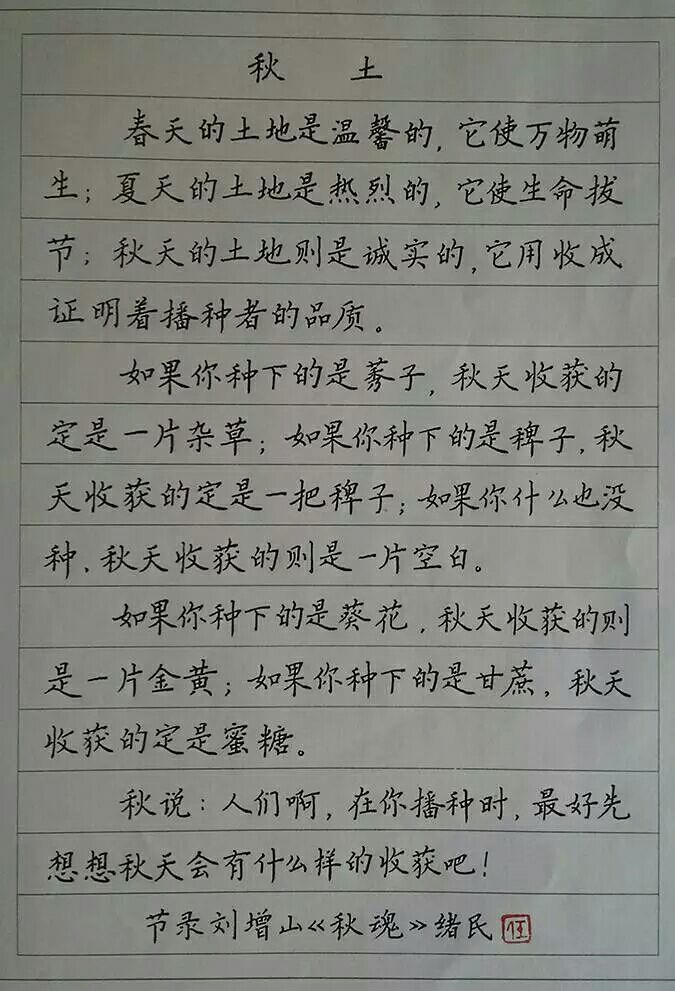 秋 土
春天的土地是温馨的，它使万物萌
生；夏天的土地是热烈的，它使生命拔
节；秋天的土地则是诚实的，它用收成
证明着播种者的品质。
如果你种下的是莠子，秋天收获的
定是一片杂草；如果你种下的是稗子，秋
天收获的定是一把稗子；如果你什么也没
种，秋天收获的则是一片空白。
如果你种下的是葵花，秋天收获的则
是一片金黄；如果你种下的是甘蔗，秋天
收获的定是蜜糖。
秋说：人们啊，在你播种时，最好先
想想秋天会有什么样的收获吧！
节录刘增山《秋魂》绪民